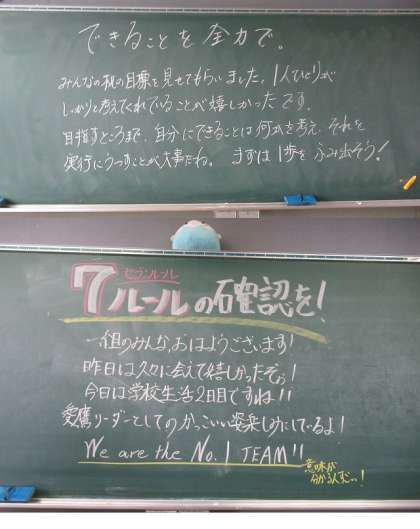 できることを全力で。
みんなの私の目標を見せてもらいました。1人ひとりが
しっかりと考えてくれていることが嬉しかったです。
目指すところまで、自分にできることは何かを考え、それを
実行にうつすことが大事だね。まずは1歩をふみ出そう!
セブンルール
7ルールの確認を!
一組のみんな、おはようございます!
昨日は久々に会えて嬉しかったぞぉ!
今日は学校生活2日目ですね!!
愛鷹リーダーとしてのかっこいい姿楽しみにしているよ!
We are the No.1 TEAM!!
意味が
分かるんだっ!